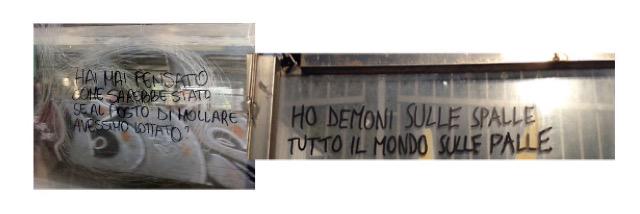 HAI MAI PENSATO
COME SAREBBE STATO
SE AL POSTO DI MOLLARE
AVESSIMO LOTTATO?
HO DEMONI SULLE SPALLE
TUTTO IL MONDO SULLE PALLE